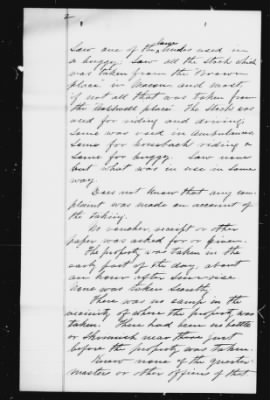 2
Saw one of the large mules used in
a buggy. Saw all the stock which
was taken from the Brown
place in Macon and most
if not all that was taken from
the place. The stock was
used for riding and driving;
some was used in Ambulances
some for horseback riding &
some for buggy. Saw none
but what was in use in some
way.
Does not know that any com-
plaint was made on account of
the taking.
No voucher, receipt or other
paper was asked for or given.
The property was taken in the
early part of the day, about
an hour after sun-rise
None was taken secretly
There was no camp in the
vicinity of where the property was
taken. There had been no battle
or skirmish near there just
before the property was taken.
Knew none of the quarter-
master or other officers of that